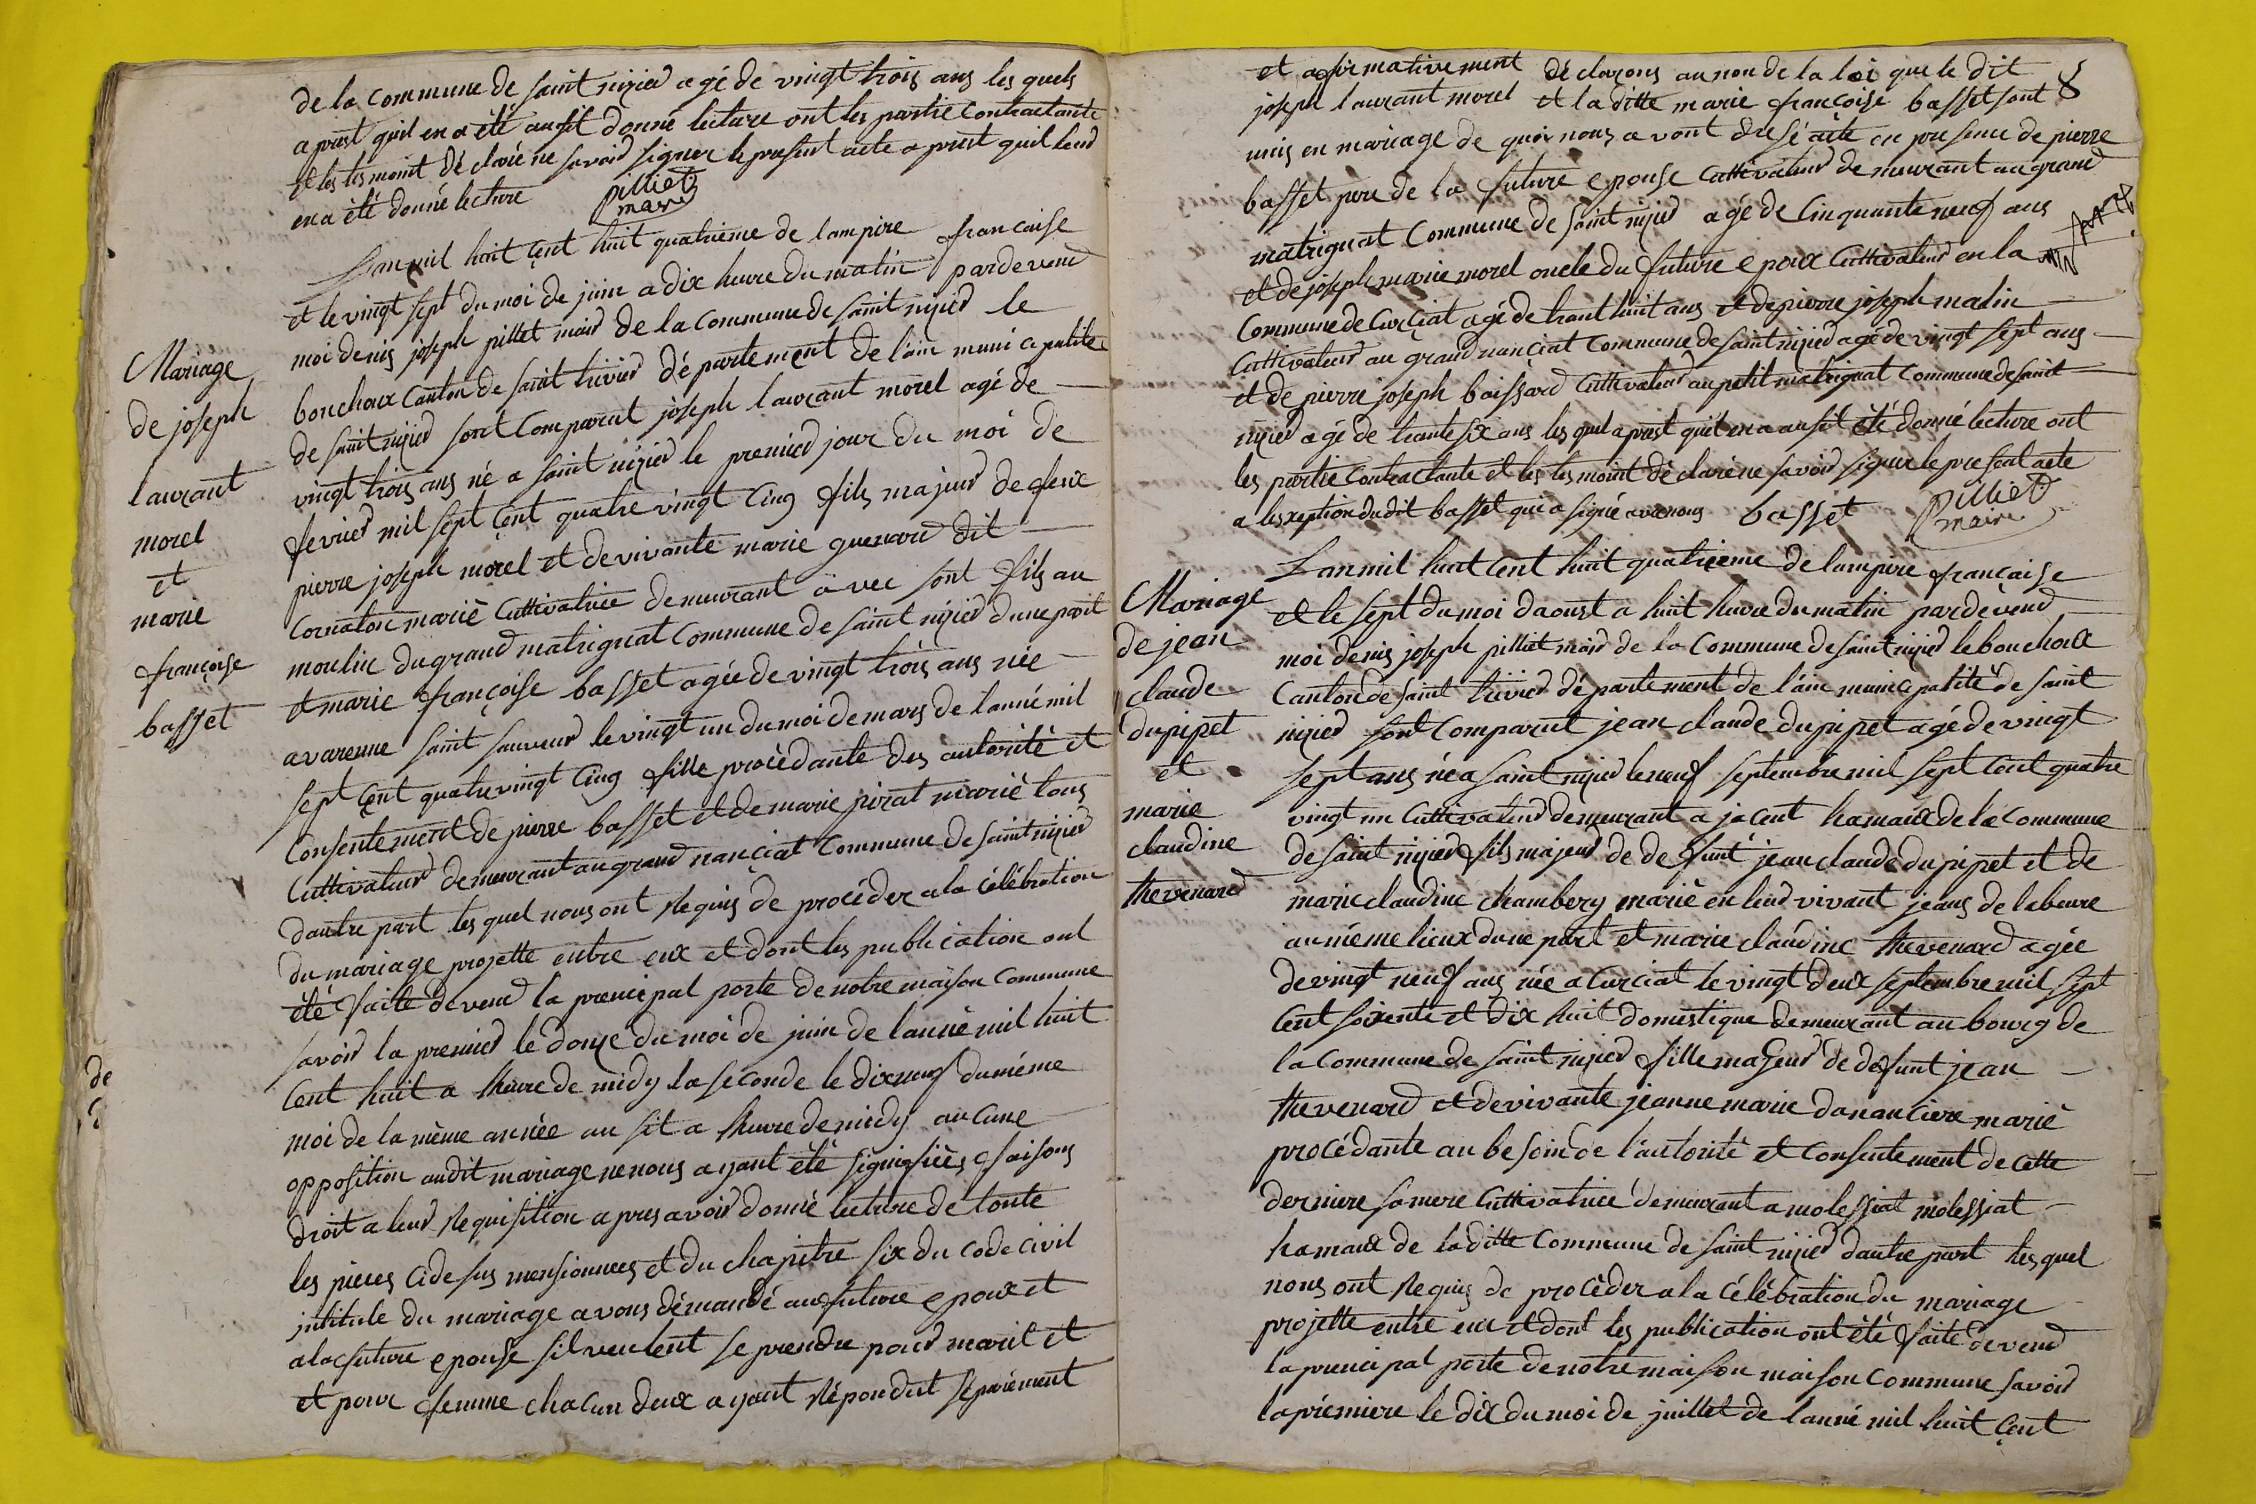 de la Commune de saint nizied agé de vingt trois ans les quels
aprest quil en a été ausit donné lecture ont les partie contractante
et les tesmoint déclaré ne savoid signer le present acte aprest quil leud
en a été donné lecture pilliet
maire
Lan mil huit cent huit quatrieme de lampire francaise
et le vingt sept du moi de juin a dix huure du matin pardevend
moi denis joseph pillet maid de la commune de saint nizied le
bouchoux Canton de saint trivied département de l'ain municipalite
de saint nizied sont comparut joseph laurant morel agé de
vingt trois ans né a saint nizied le premied jour du moi de
fevried mil sept cent quatre vingt cinq fils majeur de feux
pierre joseph morel et de vivante marie guenard dit
Cornaton marié Cultivatrice demeurant avec sont fils au
moulin du grand matrignat Commune de saint nizied dune part
et marie françoise basset agée de vingt trois ans née
a varenne saint sauveud le vingt un du moi de mars de lanné mil
sept cent quatre vingt cinq fille procédante des autorité et
consentement de pierre basset et de marie pirat marié tous
Cultivateud demeurant au grand nanciat Commune de saint nizied
dautre part les quel nous ont requis de procéder a la célébration
du mariage projette entre eux et dont les publication ont
été faite devend la prencipal porte de notre maison commune
savoid la premied le douze du moi de juin de lanné mil huit
cent huit a lheure de midy la seconde le dixneuf du même
moi de la même année au sit a lheure de midy aucune
opposition audit mariage ne nous ayant été signifiées faisons
droit a leud requisition apres avoid donné lecture de toute
les pieces cidesus mensionnees et du chapitre six du code civil
jntitule du mariage avons démandé aux futvre epoux et
a la future epouse sil veulent se prendre poud marit et
et pour femme chacun deux ayant répondut séparément
Mariage
de joseph
laurant
morel
et
marie
françoise
basset
et afirmativement déclarons au non de la loi que le dit
joseph laurant morel et la ditte marie françoise basset sont
unis en mariage de quoi nous avont dresé acte en presence de pierre
basset pere de la future epouse Cultivateud demeurant au grand
matrignat Commune de saint nizied agé de Cinquante neuf ans
et de joseph marie morel oncle du future epoux Cultivateud en la
Commune de Curciat agé de trant huit ans et de pierre joseph malin
Cultivateud au grand nanciat Commune de saint nizied agé de vingt sept ans
et de pierre joseph boissard Cultivateud au petit matrignat commune de saint
nizied agé de trante six ans les quel aprest quil en a ausit été donné lecture ont
les partie contractante et les tesmoint déclaré ne savoid signer le present acte
a lexseption dudit basset qui a signé avec nous basset pilliet
maire
Mariage
de jean
claude
dupipet
et
marie
claudine
thevenard
Lan mil huit cent huit quatrieme de lampire française
et le sept du moi daoust a huit huure du matin pardevend
moi denis joseph pilliet maid de la Commune de saint nizied le bouchoux
Canton de saint trivied département de l'ain municipalité de saint
nizied sont comparut jean claude dupipet agé de vingt
sept ans né a saint nizied le neuf septembre mil sept cent quatre
vingt un Cultivateud demeurant a jacent hamaux de la commune
de saint nizied fils majeud de defunt jean claude dupipet et de
marie claudine chambery marié en leud vivant jeans de labeure
au même lieux dune part et marie claudine thevenard agée
de vingt neuf ans née a Curciat le vingt deux septembre mil sept
cent soixente et dix huit domestique demeurant au bourg de
la Commune de saint nizied fille majeud de defunt jean
thevenard et de vivante jeanne marie dananciere marié
procédante au besoin de l'autorité et consentement de cette
derniere sa mere Cultivatrice demeurant a molessiat molessiat
hamaux de la ditte commune de saint nizied dautre part les quel
nous ont requis de procéder a la célébration du mariage
projette entre eux et dont les publication ont été faite devend
la prencipal porte de notre maison maison commune savoid
la premiere le dix du moi de juillet de lanné mil huit cent